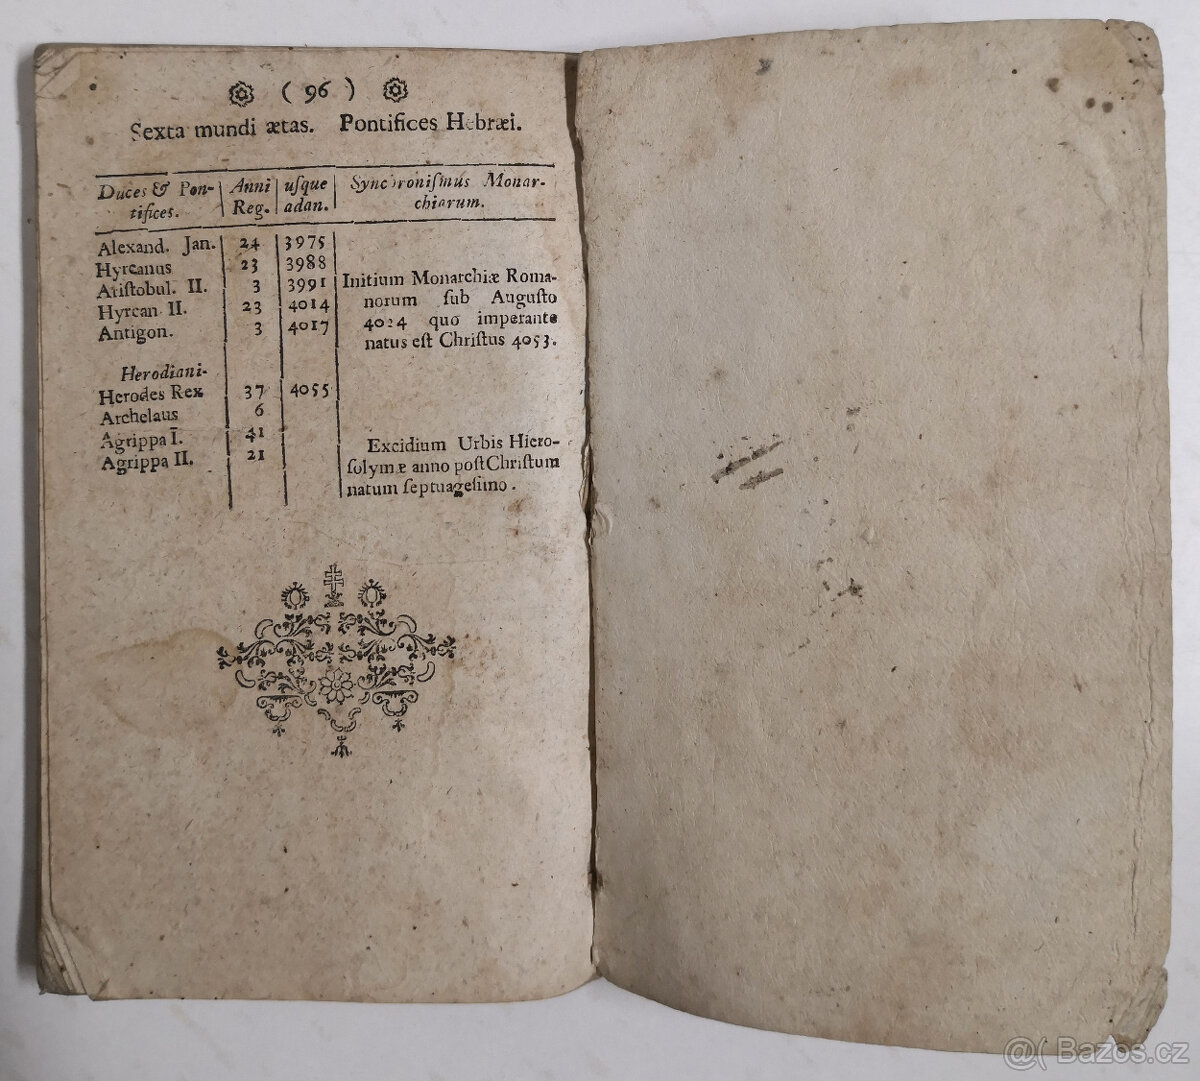 ( 96 )
Sexta mundi ætas. Pontifices Hebræi.
Duces & Pon- Anni usque Synchroniſmus Monar-
tifices. Reg. adan. chiarum.
Alexand. Jan. 24 3975
Hyrcanus 23 3988
Ariſtobul. II. 3 3991 Initium Monarchiæ Roma-
Hyrcan II. 23 4014 norum ſub Auguſto
Antigon. 3 4017 4024 quo imperante
natus eſt Chriſtus 4053.
Herodiani-
Herodes Rex 37 4055
Archelaus 6
Agrippa I. 41 Excidium Urbis Hiero-
Agrippa II. 21 ſolymæ anno poſt Chriſtum
natum ſeptuageſimo.
@( Bazos.cz